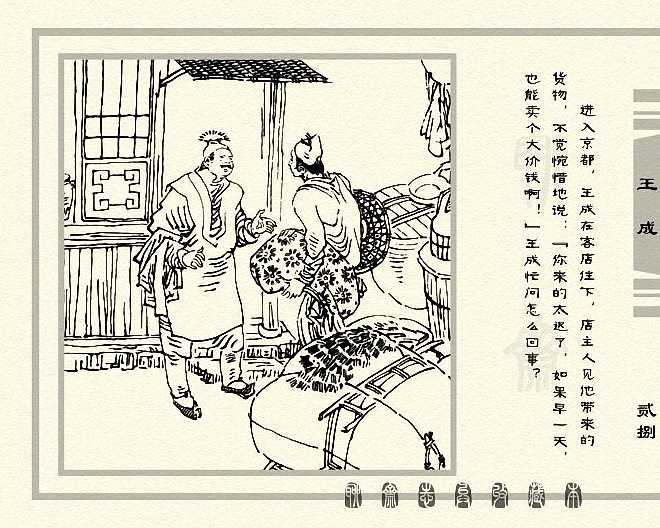 进入京都，王成在客店住下，店主人见他带来的
货物，不觉惋惜地说：「你来的太迟了，如果早一天，
也能卖个大价钱啊！」王成忙问怎么回事？
王成
贰捌